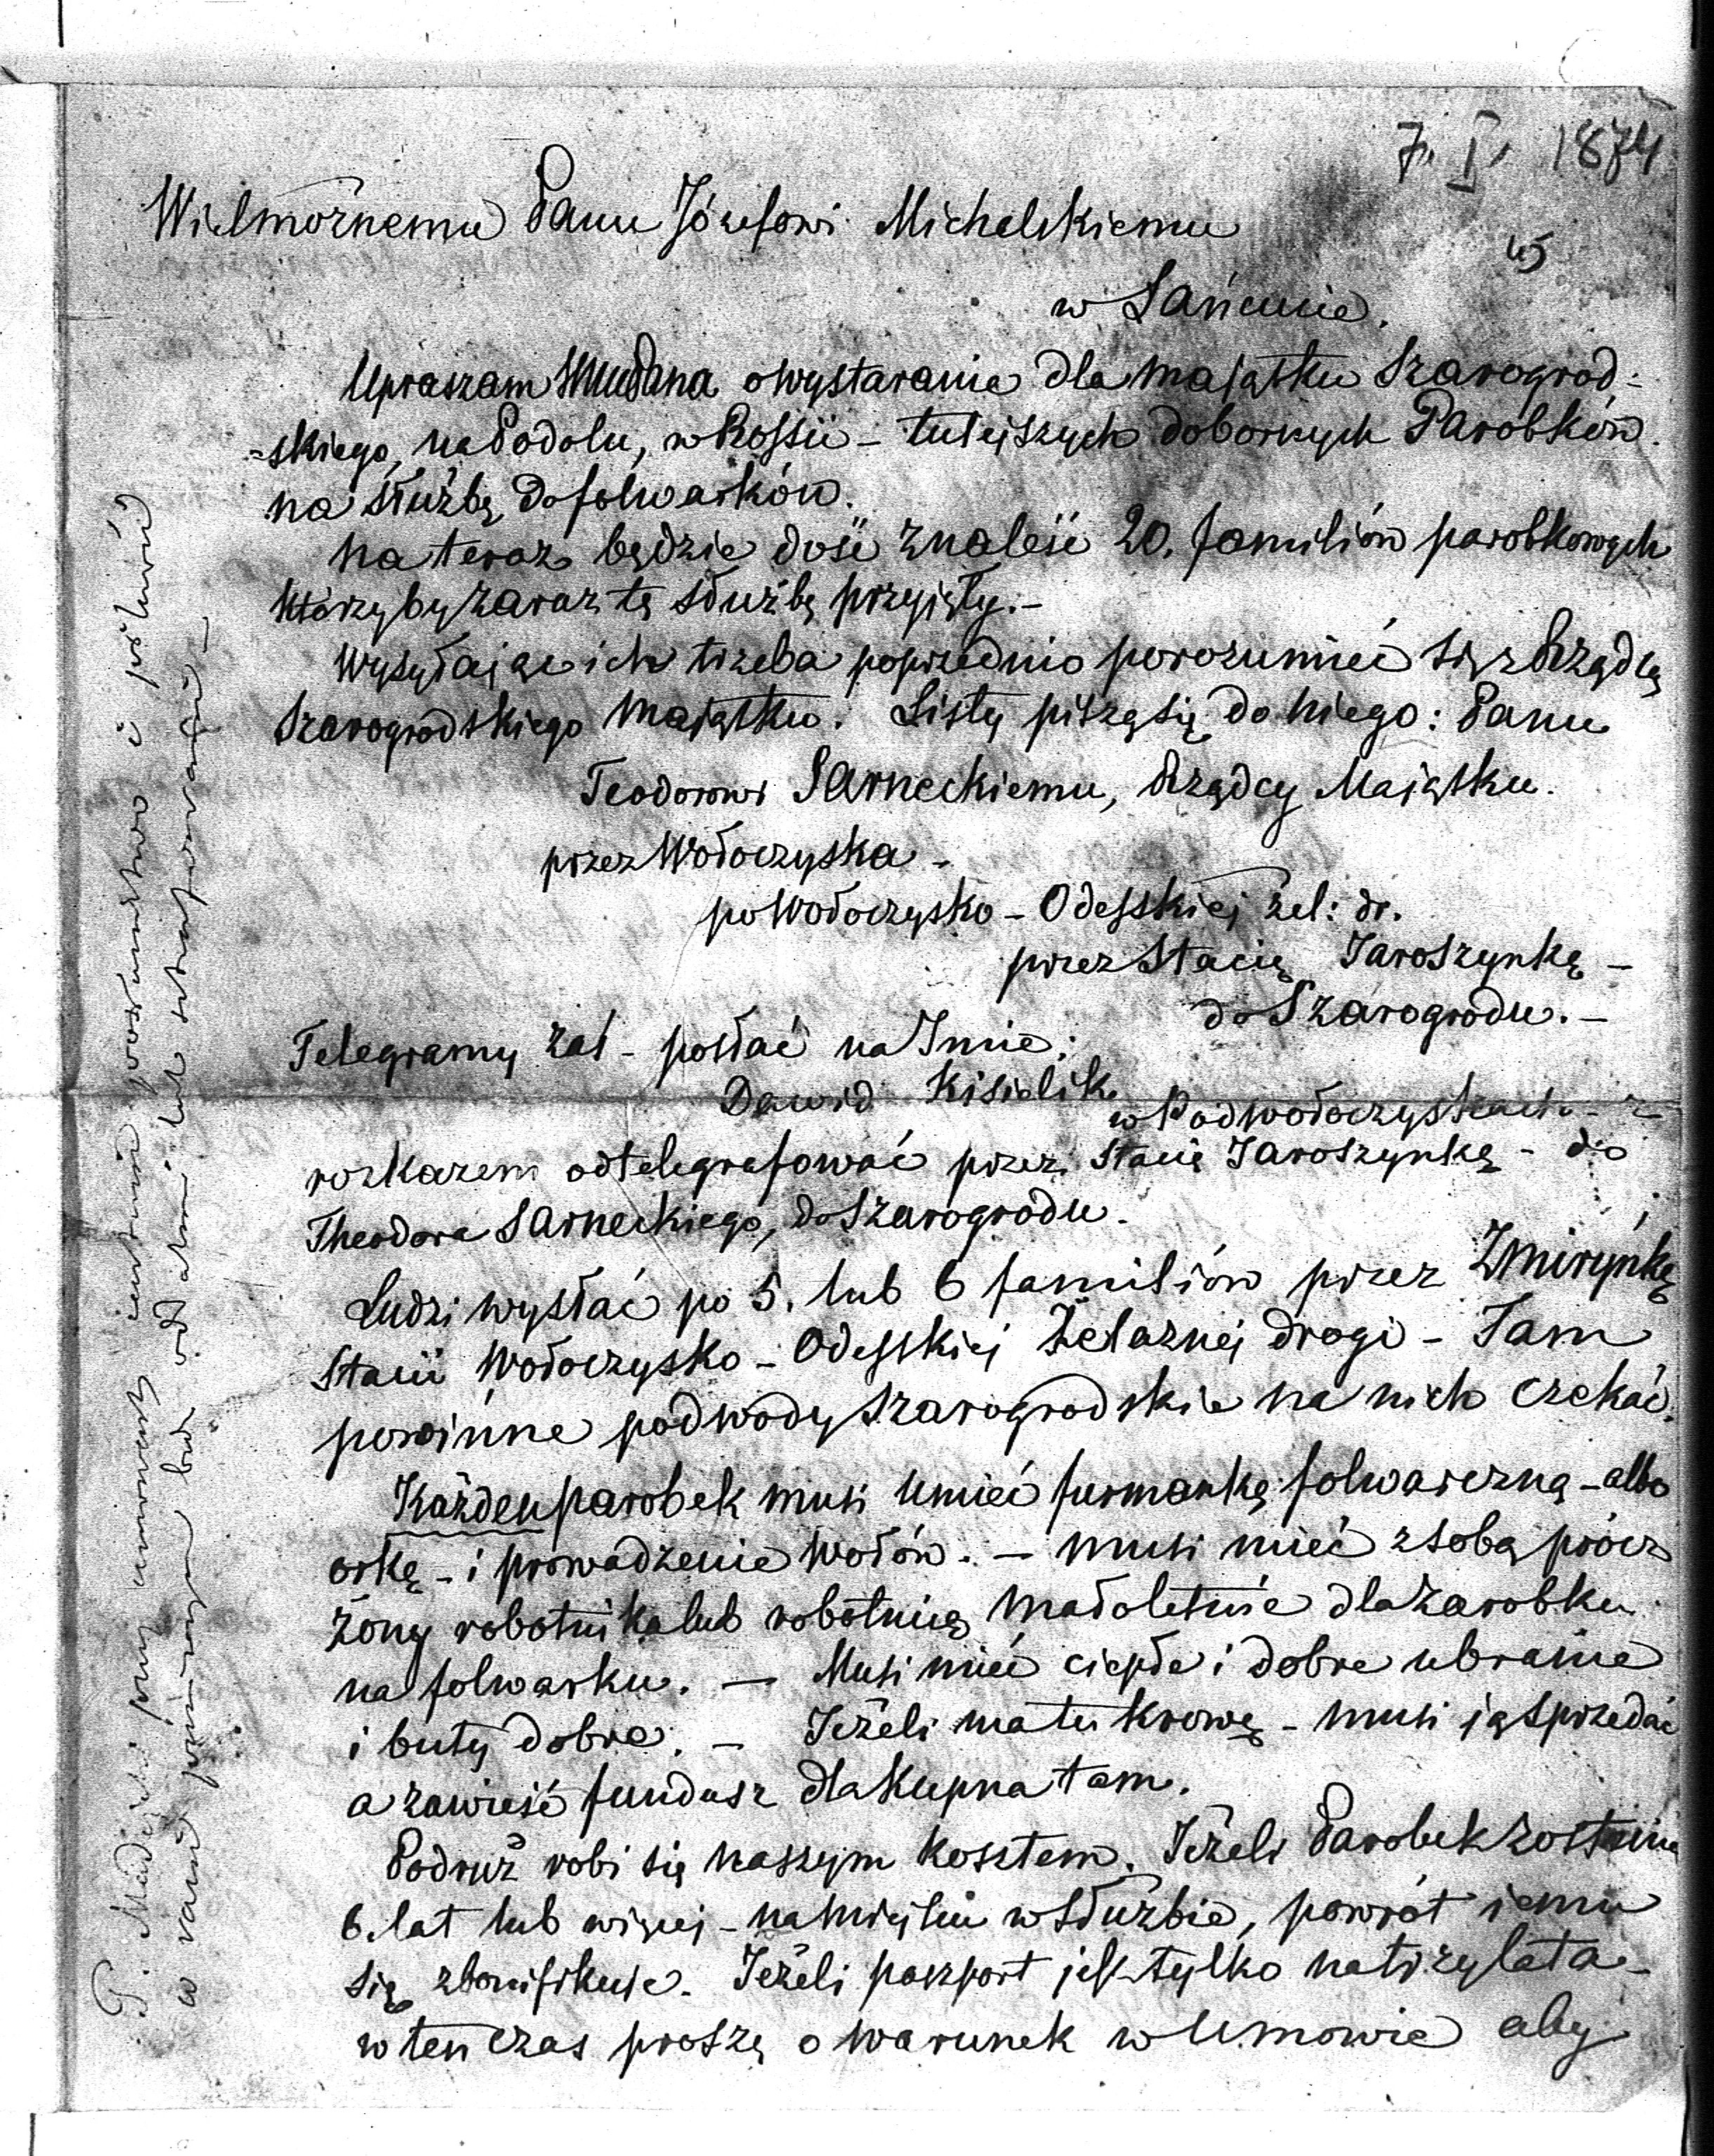 7. I. 1874
45
Wielmożnemu Panu Józefowi Michalskiemu
w Łańcucie.
Upraszam WMPana o wystaranie dla majątku Szarogrod-
-skiego, na Podolu, w Rossii - tutejszych dobornych Parobków
na służbę do folwarków.
Na teraz będzie dość znaleść 20. familiów parobkowych
którzyby zaraz tę służbę przyięły.-
Wysyłając ich trzeba poprzednio porozumieć się z Rządcą
Szarogrodskiego Majątku. Listy piszą się do niego: Panu
Teodorowi Sarneckiemu, Rządcy Maiątku.
przez Wołoczyska -
po Wołoczysko - Odesskiej żel: dr.
przez Stacię Jaroszynkę -
do Szarogrodu.-
Telegramy zaś - posłać na Imie:
Dawid Kisielik
w Podwołoczyskach - z
rozkazem odtelegrafować przez Stacię Jaroszynkę - do
Theodora Sarneckiego, do Szarogrodu.
Ludzi wysłać po 5. lub 6 familiów przez Żmirynkę
Stacii Wołoczysko - Odesskiej Żelaznéj drogi - Tam
powinne podwody Szarogrodskie na nich czekać.
Każden parobek musi umieć furmankę folwarczną - albo
orkę - i prowadzenie wołów. - musi mieć z sobą prócz
żony robotnika lub robotnicę małoletnie dla zarobku
na folwarku. - Musi mieć ciepłe i dobre ubranie
i buty dobre. - Jeżeli ma tu krowę - musi ją sprzedać
a zawieść fundusz dla kupna tam.
Podruż robi się naszym kosztem. Jeżeli Parobek zostanie
6. lat lub więcej - na miejscu w służbie, powrót iemu
się zbonifikuje. Jeżeli paszport jest tylko na trzy lata -
w ten czas proszę o warunek w Umowie aby
P. przy umowach
w razie